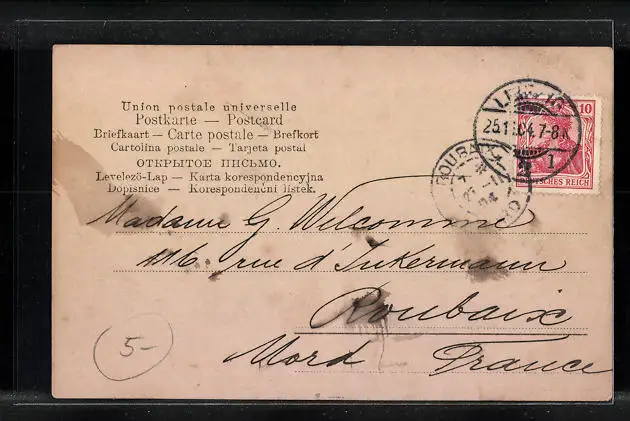 Union postale universelle
Postkarte — Postcard
Briefkaart — Carte postale — Brefkort
Cartolina postale — Tarjeta postal
ОТКРЫТОЕ ПИСЬМО.
Levelező-Lap — Karta korespondencyjna
Dopisnice — Korespondenční lístek.
10
DEUTSCHES REICH
25.11.04.7-8
1
ROUBAIX
Madame G. Welcomme
116. rue d'Inkermann
Roubaix
Nord France
5-